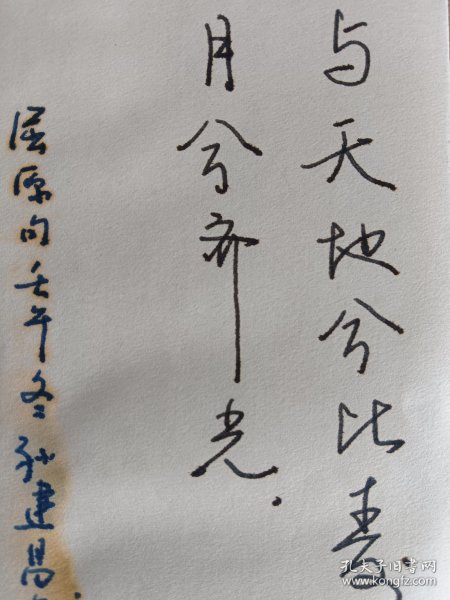 与天地兮比寿
月兮齐光.
屈原句壬午冬孙建昌
孔夫子旧书网
www.kongfz.com